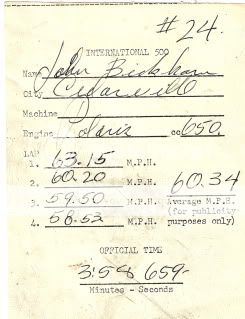 #24.
INTERNATIONAL 500
Name John Bickham
City
Machine
Engine Polaris cc 650
LAP
1. 63.15 M.P.H.
2. 60.20 M.P.H. 60.34
3. 59.50 M.P.H. Average M.P.H.
(for publicity
4. 58.52 M.P.H. purposes only)
OFFICIAL TIME
3:58 659-
Minutes - Seconds